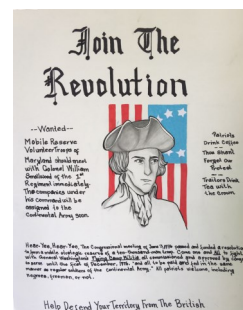 Join The
Revolution
--Wanted--
Mobile Reserve
Volunteer Troops of
Maryland should meet
with Colonel William
Smallwood of the 1st
Regiment immediately.
The companies under
his command will be
assigned to the
Continental Army soon.
Patriots
Drink Coffee
Thou Shant
Forget Our
Protest
Traitors Drink
Tea with
the Crown.
Hear-Yee, Hear-Yee, The Congressional meeting of June 1776 passed and funded a resolution
to join a mobile strategic reserve of a ten-thousand-man troop. Come one and All to fight
with General Washington's Flying Camp Militia all commissioned and approved by Congress
to serve until the first of December, 1776, "and all to be paid and fed in the same
manner as regular soldiers of the Continental Army." All patriots welcome, including
negroes, freeman, or not.
Help Defend Your Territory From The British